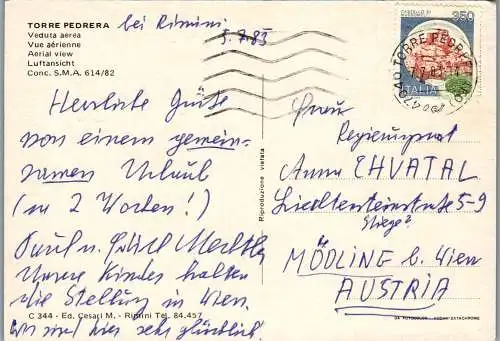 TORRE PEDRERA
bei Rimini
Veduta aerea
Vue aérienne
Aerial view
Luftansicht
Conc. S.M.A. 614/82
5.7.83
Herzliche Grüße
von einem gemein-
samen Urlaub
(nur 2 Wochen!)
Paul u.
Unsere Kinder halten
die Stellung in Wien.
Wir sind hier sehr glücklich.
C 344 - Ed. Cesari M. - Rimini Tel. 84.457
Riproduzione vietata
350
ITALIA
TORRE PEDRERA
47040
Frau
Regierungsrat
Anna CHVATAL
Liechtensteinstraße 5-9
Stiege 2
MÖDLING b. Wien
AUSTRIA